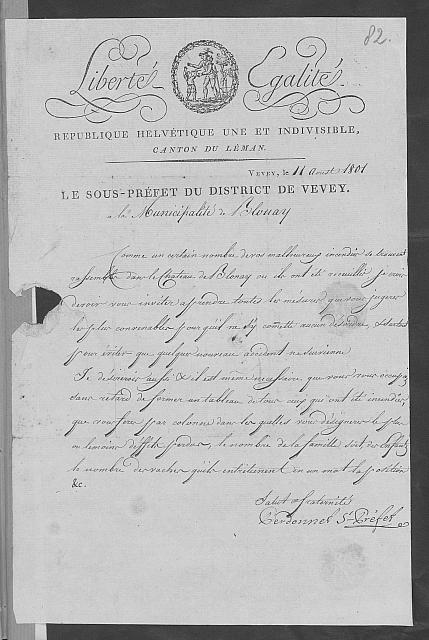 82.
Liberté Egalité
REPUBLIQUE HELVÉTIQUE UNE ET INDIVISIBLE,
CANTON DU LÉMAN.
VEVEY, le 11 aoust 1801
LE SOUS-PRÉFET DU DISTRICT DE VEVEY.
a la Municipalité de Blonay
Comme un certain nombre de vos malheureux incendiés se trouvent
rassemblé dans le Chateau de Blonay ou ils ont été recueillis je crois
devoir vous inviter a prendre toutes les mésures que vous jugerez
les plus convenables pour qu'il ne s'y comette aucun desordre, & surtout
pour éviter que quelque nouveau accident ne survienne
Je desirerois aussi & il est même necessaire que vous vous occupiez
sans retard de former un tableau de tous ceux qui ont été incendiés,
que vous ferez par colonne dans les quelles vous désignerez le plus
ou le moins d'effets perdus, le nombre de la famille soit des enfants
le nombre des vaches qu'ils entretienent en un mot la position
&c.
Salut & fraternité
Perdonnet Ss Préfet